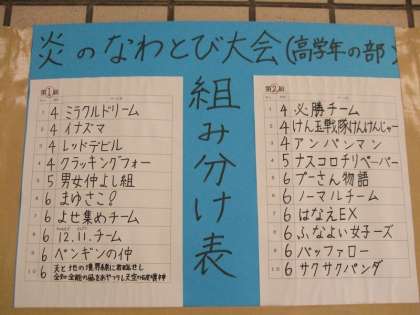 炎のなわとび大会(高学年の部)
組み分け表
第1組
4 ミラクルドリーム
4 イナズマ
4 レッドデビル
4 クラッキングフォー
5 男女仲よし組
6 まゆさこ?
6 よせ集めチーム
6 12.11.チーム
6 ペンギンの仲
6 天と地の境界線に君臨せし
全知全能の脳をあやつりし天空の破壊神
第2組
4 必勝チーム
4 けん玉戦隊けんけんじゃー
4 アンパンマン
5 ナスコロチリペーパー
6 プーさん物語
6 ノーマルチーム
6 はなえEX
6 ふなよい女子ーズ
6 バッファロー
6 サクサクパンダ